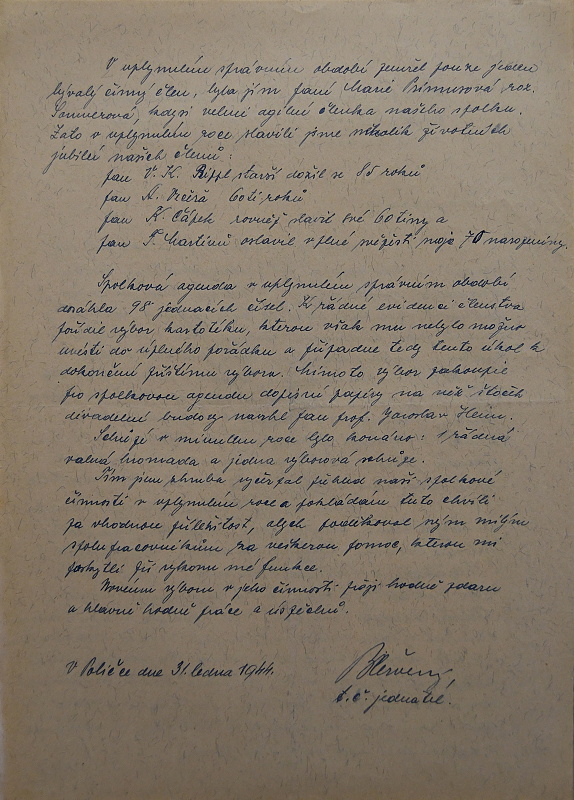 V uplynulém správním období zemřel pouze jeden
bývalý činný člen, byla jím paní Marie Primusová roz.
kdysi velmi agilní členka našeho spolku.
Zato v uplynulém roce slavili jsme několik životních
jubileí našich členů:
pan V. K. Rippl starší dožil se 85 roků
pan A. 60ti roků
pan K. Čápek rovněž slavil své 60tiny a
pan F. Martinů oslavil v plné svěžesti svoje 70 narozeniny.
Spolková agenda v uplynulém správním období
dosáhla 98 jednacích čísel. K řádné evidenci členstva
pořídil výbor kartotéku, kterou však mu nebylo možno
uvésti do úplného pořádku a připadne tedy tento úkol k
dokončení příštímu výboru. Mimoto výbor zakoupil
pro spolkovou agendu dopisní papíry na něž štoček
divadelní budovy navrhl pan prof. Jaroslav Hein.
Schůzí v minulém roce bylo konáno: 1 řádná
valná hromada a jedna výborová schůze.
Tím jsem zhruba vyčerpal přehled naší spolkové
činnosti v uplynulém roce a pokládám tuto chvíli
za vhodnou příležitost, abych poděkoval svým milým
spolupracovníkům za veškerou pomoc, kterou mi
poskytli při výkonu mé funkce.
Novému výboru v jeho činnosti přeji hodně zdaru
a hlavně hodně práce a úspěchů.
V Poličce dne 31. ledna 1944.
t. č. jednatel.